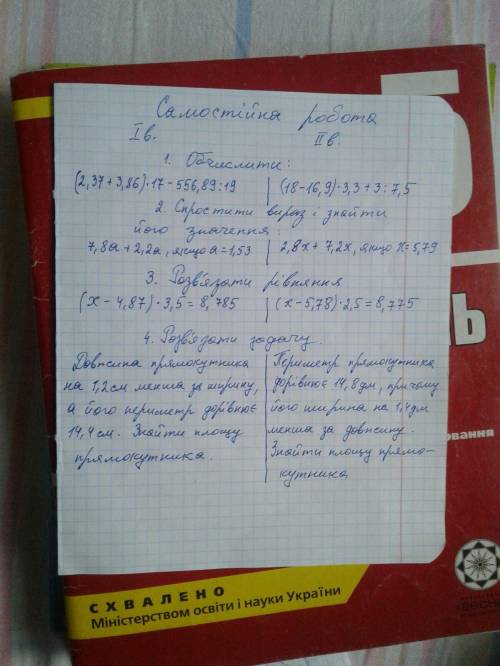 Самостійна робота
Ів. ІІв.
1. Обчислити:
(2,37+3,86)·17-556,89:19 (18-16,9)·3,3+3:7,5
2. Спростити вираз і знайти
його значення:
7,8а+2,2а, якщо а=1,53 2,8х+7,2х, якщо х=5,79
3. Розв'язати рівняння
(х-4,87)·3,5=8,785 (х-5,78)·2,5=8,775
4. Розв'язати задачу.
Довжина прямокутника
на 1,2см менша за ширину,
а його периметр дорівнює
14,4см. Знайти площу
прямокутника.
Периметр прямокутника
дорівнює 14,8дм, причому
його ширина на 1,4дм
менша за довжину.
Знайти площу прямо-
кутника
Ь
ювання
СХВАЛЕНО
Міністерством освіти і науки України